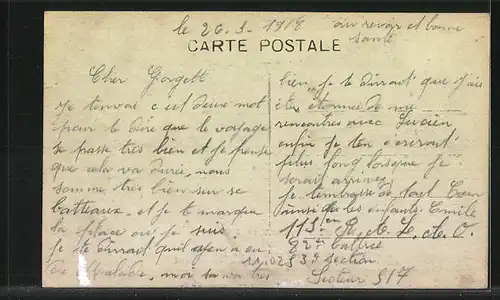 le 26.3.1918
au revoir et bonne
santé
CARTE POSTALE
Cher
Je tenvoi c ut deux mot
pour te dire que le voyage
se passe tres bien et je pense
que cela va durée, nous
somme très bien sur se
batteaux, et je te marque
ta place ou je suis
je te dirrait quil a eu
de Malade, moi sa va tres
bien, je te dirrait que j'ais
éte étonnee de me
rencontres avec Lucien
enfin je ten écrirait
plus long lorsque je
serait arrivez
je tembrasse de tout Cœur
ainsi que les enfants. Emile
113 em R. A. L. A. O.
22 em battrie
3 em section
Secteur 517